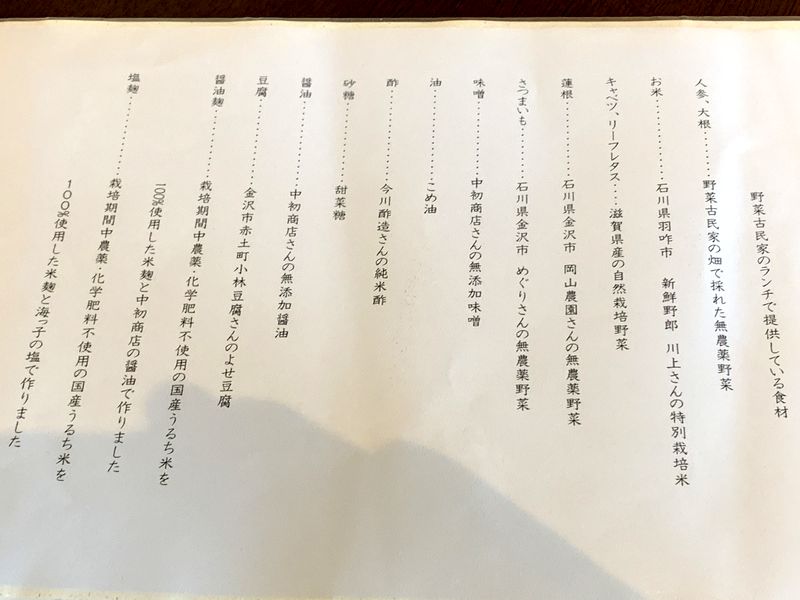 野菜古民家のランチで提供している食材
人参、大根………野菜古民家の畑で採れた無農薬野菜
お米…………石川県羽咋市 新鮮野郎 川上さんの特別栽培米
キャベツ、リーフレタス…滋賀県産の自然栽培野菜
蓮根…………石川県金沢市 岡山農園さんの無農薬野菜
さつまいも………石川県金沢市 めぐりさんの無農薬野菜
味噌…………中初商店さんの無添加味噌
油…………こめ油
酢…………今川酢造さんの純米酢
砂糖…………甜菜糖
醤油…………中初商店さんの無添加醤油
豆腐…………金沢市赤土町小林豆腐さんのよせ豆腐
醤油麹…………栽培期間中農薬・化学肥料不使用の国産うるち米を
100%使用した米麹と中初商店の醤油で作りました
塩麹…………栽培期間中農薬・化学肥料不使用の国産うるち米を
100%使用した米麹と海っ子の塩で作りました